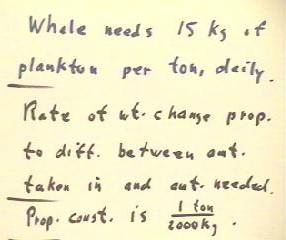 Whale needs 15 kg of
plankton per ton, daily.
Rate of wt. change prop.
to diff. between amt.
taken in and amt. needed.
Prop. const. is 1 ton / 2000 kg .